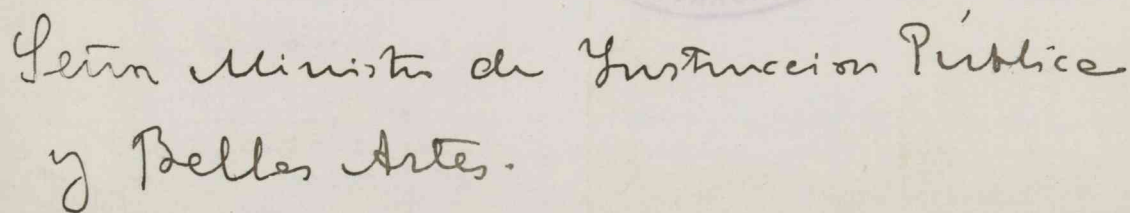 Señor Ministro de Instruccion Pública
y Bellas Artes.